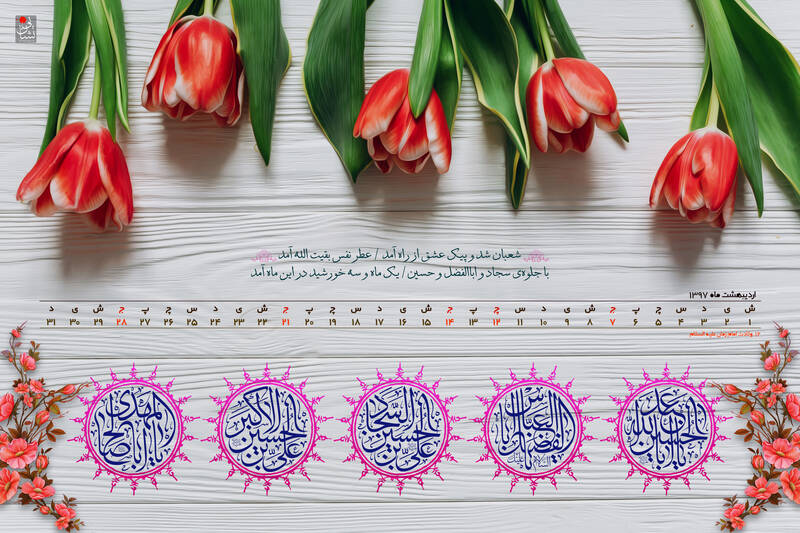 شعبان شد و پیک عشق از راه آمد / عطر نفس بقیت الله آمد
با جلوه‌ی سجاد و اباالفضل و حسین / یک ماه و سه خورشید در این ماه آمد
اردیبهشت ماه ۱۳۹۷
ش ی د س چ پ ج ش ی د س چ پ ج ش ی د س چ پ ج ش ی د س چ پ ج ش ی د
۱ ۲ ۳ ۴ ۵ ۶ ۷ ۸ ۹ ۱۰ ۱۱ ۱۲ ۱۳ ۱۴ ۱۵ ۱۶ ۱۷ ۱۸ ۱۹ ۲۰ ۲۱ ۲۲ ۲۳ ۲۴ ۲۵ ۲۶ ۲۷ ۲۸ ۲۹ ۳۰ ۳۱
۱۲ ولادت امام زمان علیه السلام
یا اباعبدالله الحسین بن علی
یا اباالفضل العباس
علی بن الحسین السجاد
علی بن الحسین الاکبر
یا اباصالح المهدی